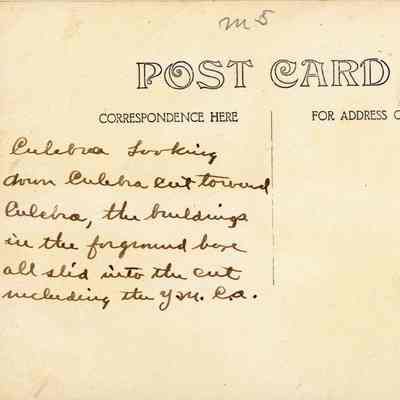 m 5
POST CARD
CORRESPONDENCE HERE
FOR ADDRESS O
Culebra Looking
down Culebra cut toward
Culebra, the buildings
in the forground have
all slid into the cut
including the Y.M.C.A.